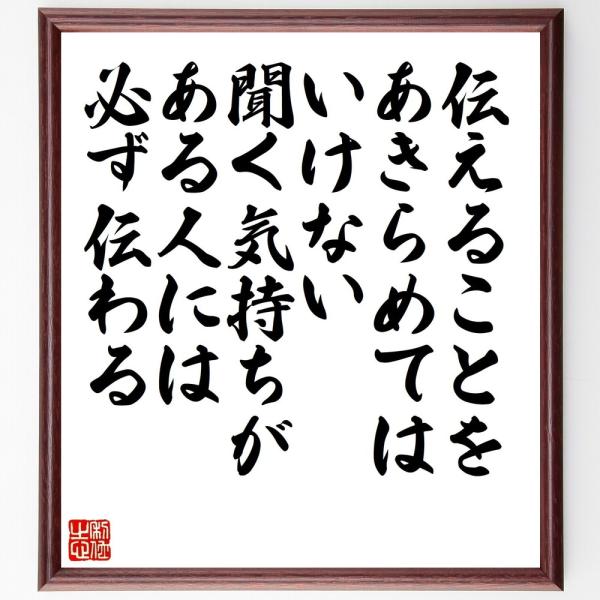 伝えることを
あきらめては
いけない
聞く気持ちが
ある人には
必ず伝わる